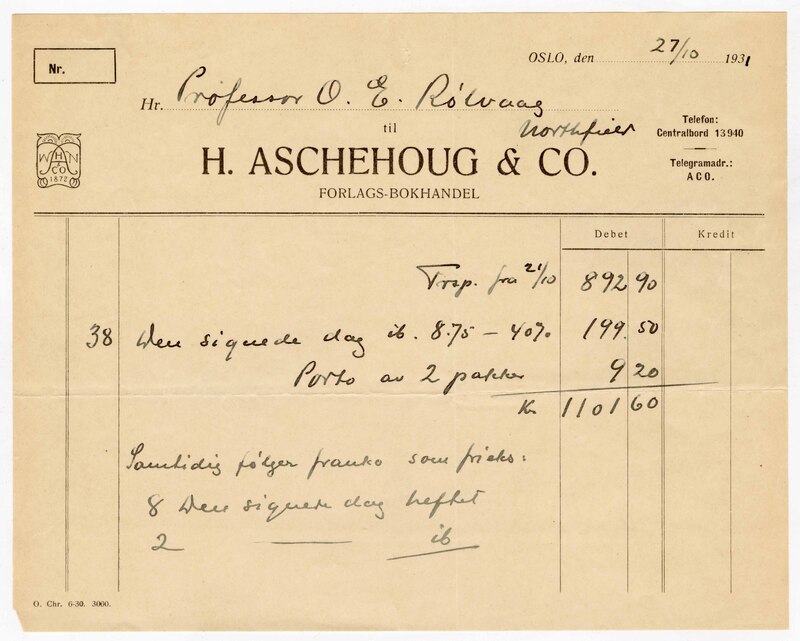 Nr.
OSLO, den 27/10 1931
Hr. Professor O. E. Rölvaag
til Northfield
Telefon:
Centralbord 13940
Telegramadr.:
ACO.
W H N
& CO
1872
H. ASCHEHOUG & CO.
FORLAGS-BOKHANDEL
Debet Kredit
Trsp. fra 21/10 892 90
38 Den signede dag ib. 8.75 - 40% 199.50
Porto av 2 pakker 9 20
Kr 1101 60
Samtidig følger franko som frieks:
8 Den signede dag heftet
2 — ib
O. Chr. 6-30. 3000.